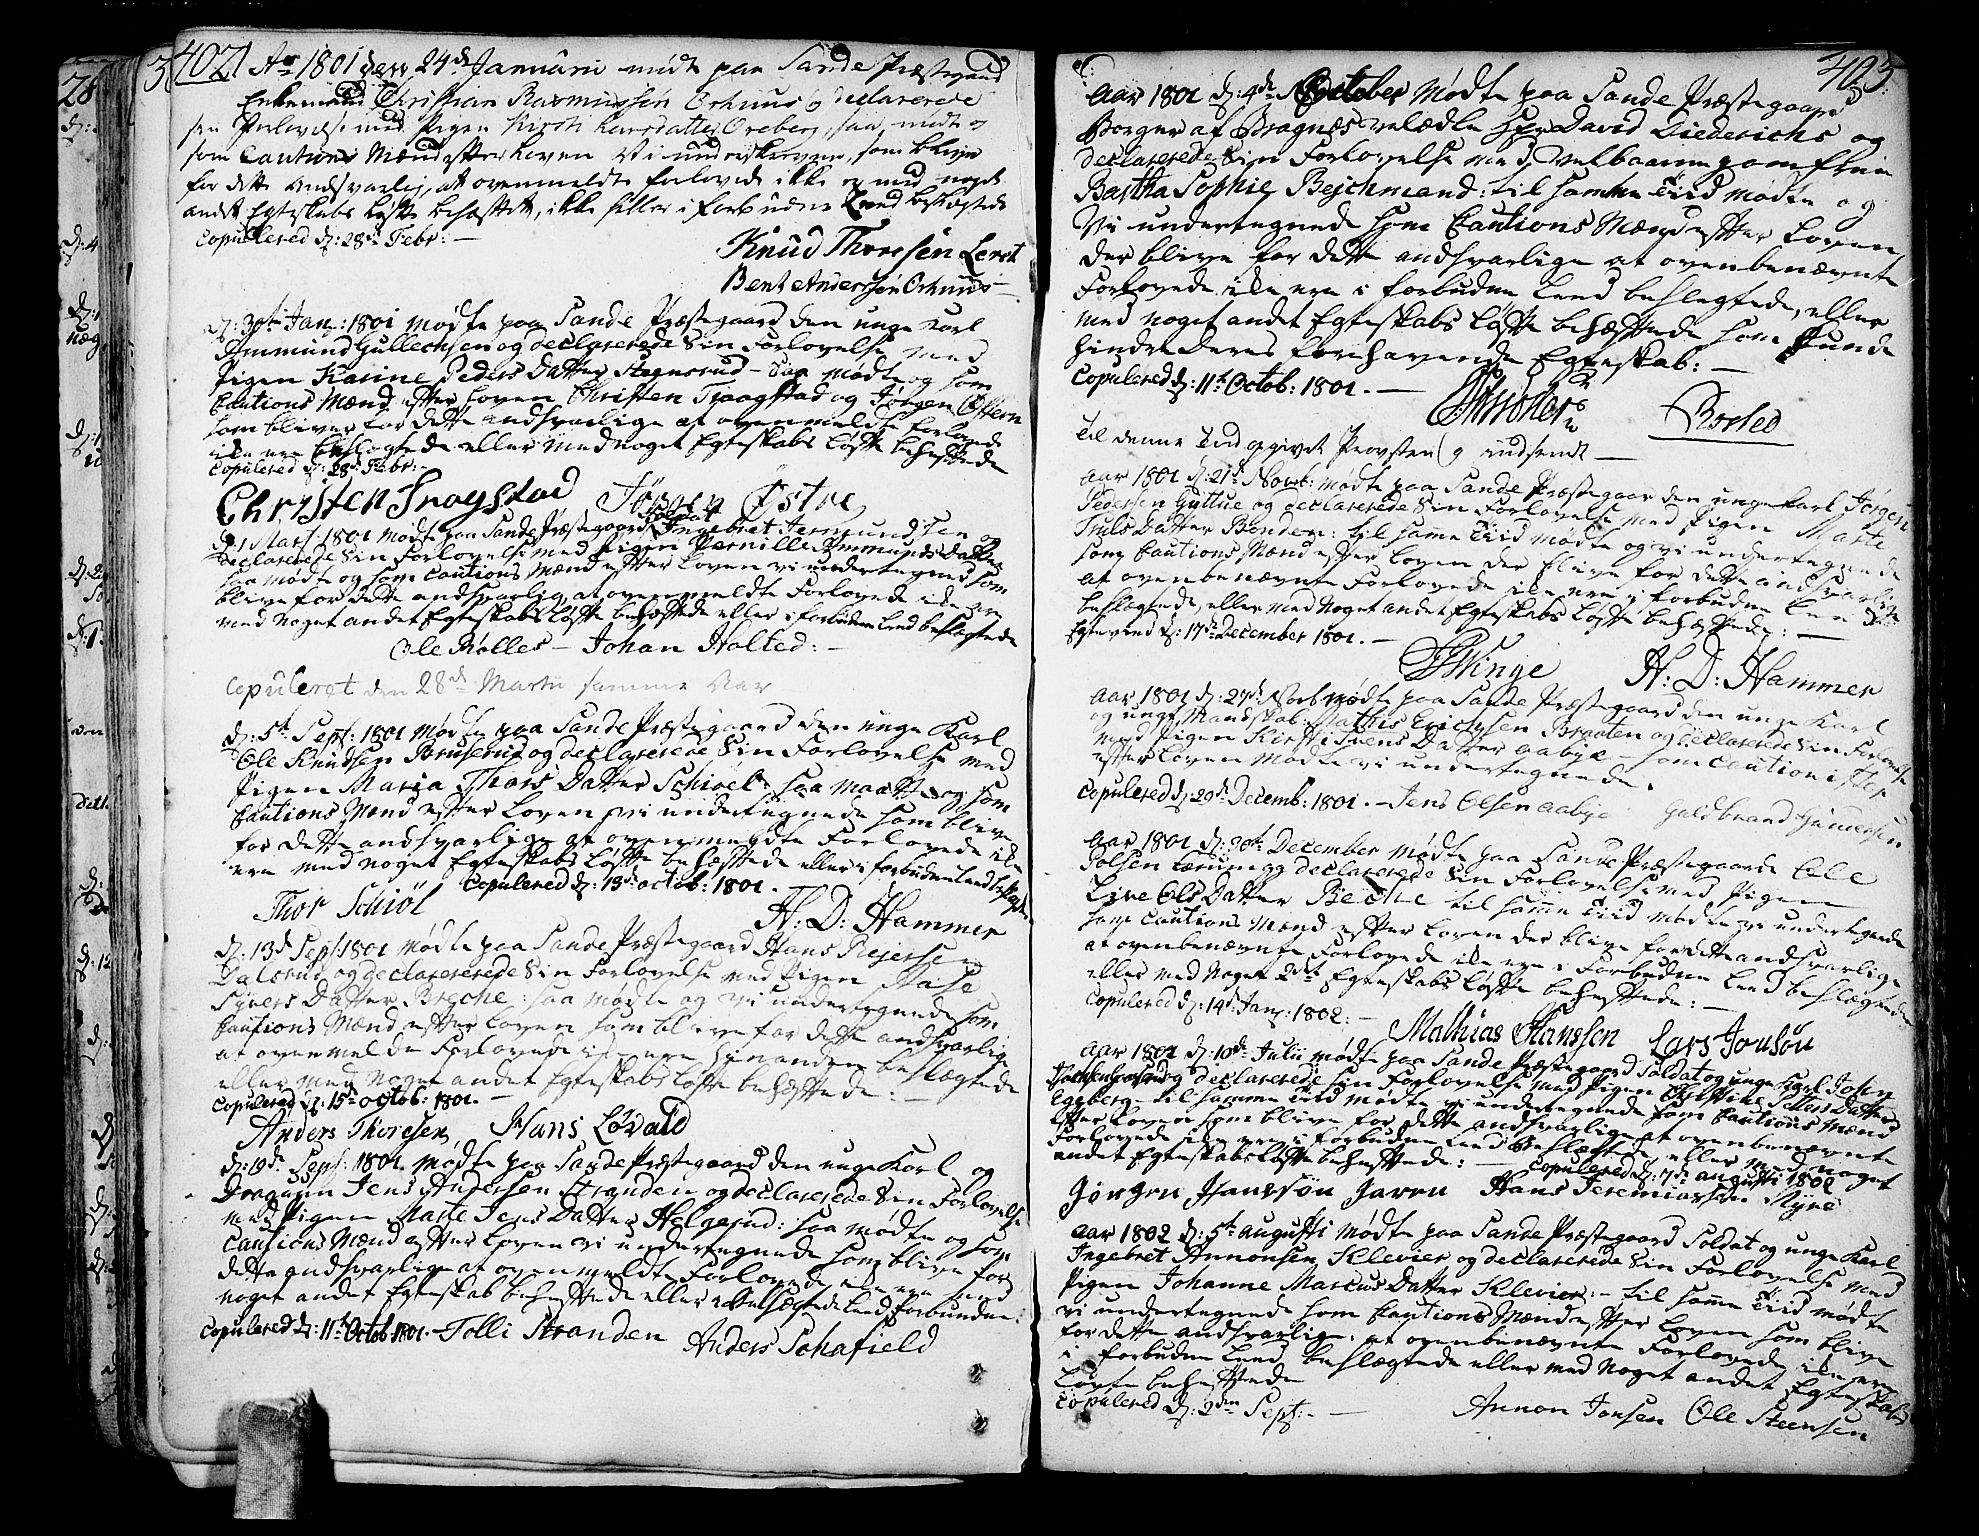 402
Aar 1801 den 24de Januarii mødte paa Sande Præstegaard
Enkemand Christian Rasmussen Orhuus og declarerede
sin Forlovelse med Pigen Kirsti Larsdatter Oreberg, saa mødte og
som Cautions Mænd efter Loven Vi underskrevne, som blive
for dette Andsvarlig, at ovenmeldte forlovede ikke er med noget
andet Egteskabs Løfte behæftet, ikke heller i forbudne Leed beslægtede
Copulered d: 28de Febr: —
Knud Thoresen Leret
Bent Anderssen Orhuus
d: 30te Jan: 1801 mødte paa Sande Præstegaard den unge Karl
Ammund Gullechsen og declarerede Sin Forlovelse med
Pigen Karine Peders Datter Stegnsrud — Saa mødte og som
Cautions Mænd efter Loven Christen Traagstad og Jørgen Østern
som bliver for dette andsvarlige at ovenmeldte Forlovede
icke ere beslægtede eller med noget Egteskabs Løfte behæftede
Copulered d: 28de Febr:
Christen Trogstad Jörgen Østre
d: 1 Mart: 1801 mødte paa Sande Præstegaard Soldat Ingebret Jermundsen og
declarerede Sin Forlovelse med Pigen Pernille Ammunds Datter
saa mødte og som Cautions Mænd efter Loven vi undertegnede som
blive for dette andsvarlig, at ovenmeldte Forlovede icke ere
med noget andet Egteskabs Løfte behæftede eller i forbuden Leed beslægtede
Ole Rølles — Johan Holted: —
Copuleret den 28de Martii samme Aar
d: 5te Sept: 1801 mødte paa Sande Præstegaard den unge Karl
Ole Knudsen Bruserud og declarerede Sin Forlovelse med
Pigen Maria Thors Datter Schiøel: saa mødte og som
Cautions Mænd efter Loven vi undertegnede som blive
for dette andsvarlige at ovenmeldte Forlovede icke
ere med noget Egteskabs Løfte behæftede eller i forbuden Leed beslægtede
Copulered d: 13de Octob: 1801.
Thor Schiöl H: D: Hammer
d: 13de Sept 1801 mødte paa Sande Præstegaard Hans Rejersen
Dalsrud og declarerede Sin Forlovelse med Pigen Aase
Syvers Datter Breche: saa mødte og vi undertegnede som
Cautions Mænd efter Loven som blive for dette andsvarlige
at ovenmelde Forlovede icke ere hinanden beslægtede
eller med noget andet Egteskabs Løfte behæftede: —
Copulered d: 15de Octob: 1801. —
Anders Thoresen Hans Løvald
d: 19de Sept: 1801 mødte paa Sande Præstegaard den unge Karl og
Dragoun Jens Andersen Stranden og declarerede Sin Forlovelse
med Pigen Marte Jens Datter Helgerud: saa mødte og som
Cautions Mænd efter Loven vi undertegnede som blive for
dette andsvarlige at ovenmeldte Forlovede icke ere med
noget andet Egteskab behæftede eller i Beslægtede Leed forbunden:
Copulered d: 11te Octob 1801. — Tolli Stranden
Anders Schafield
403.
Aar 1801 d: 4de October Mødte paa Sande Præstegaard
Borger af Bragnæs velædle Hr David Diederichs og
declarerede Sin Forlovelse med Velbaarne Jomfrue
Bartha Sophie Bejchmand: til samme Tiid mødte og
Vi undertegnede som Cautions Mænd efter Loven
der blive for dette andsvarlige at ovenbenævnte
Forlovede icke ere i forbuden Leed beslegtede, eller
med noget andet Egteskabs Løfte behæftede som kunde
hindre Deres forehavende Egteskab: —
Copulered d: 11te Octob: 1801. —
Til denne Tiid opgivet Provsten og indsendt —
Aar 1801 d: 21de Novbr: mødte paa Sande Præstegaar den unge Karl Jørgen
Pedersen Guttue og declarerede Sin Forlovelse med Pigen Marte
Truls Datter Bonden: til samme Tiid mødte og vi undertegnede
som Cautions Mænd efter Loven der blive for dette andsvarlige
at ovenbenævnte Forlovede icke ere i forbuden Leed
beslægtede, eller med noget andet Egteskabs Løfte behæftede: —
Egteviend d: 17de December 1801. —
Winge H: D: Hammer
Aar 1801 d: 27de Novb mødte paa Sande Præstegaard den unge Karl
og unge Mandskab: Mathis Erichsen Braaten og declarerede Sin Forlovelse
med Pigen Kirsti Svens Datter Aabye — som Cautionister
efter Loven mødte vi undertegnede
Copulered d: 29de Decemb: 1801. — Jens Olsen Aabye Guldbrand Gundersen
Aar 1801 d: 30te December mødte paa Sande Præstegaard Ole
Jolsen Lerum og declarerede Sin Forlovelse med Pigen
Live Ols Datter Beche til samme Tiid mødte vi undertegnede
som Cautions Mænd efter Loven der blive for dette andsvarlige
at ovenbenævnte Forlovede icke ere i Forbuden Leed beslægtede
eller med noget andet Egteskabs Løfte behæftede: —
Copulered d: 14de Jan: 1802: —
Mathias Hanssen Lars Jonsön
Aar 1802 d: 10de Julii mødte paa Sande Præstegaard Soldat og unge Karl John
og declarerede Sin Forlovelse med Pigen Datter
Egeberg — til samme Tiid mødte vi undertegnede som Cautions Mænd
efter Loven som blive for dette andsvarlige at ovenbenævnte
Forlovede icke ere i forbuden Leed Beslægtede, eller med noget
andet Egteskabs Løfte behæftede: — Copulered d: 7de Augusti 1802
Jørgen Hanssön Haren Hans Jeremiassen Myre
Aar 1802 d: 5te Augusti mødte paa Sande Præstegaard Soldat og unge Karl
Ingebret Annonsen Klevier og declarerede Sin Forlovelse med
Pigen Johanne Marcus Datter Klevier: — til samme Tiid mødte
vi undertegnede som Cautions Mænd efter Loven som blive
for dette andsvarlige: at ovenbenævnte Forlovede icke ere
i forbuden Leed beslægtede eller med noget andet Egteskabs
Løfte behæftede
Copulered d: 2den Sept: —
Annon Jonsen Ole Steensen